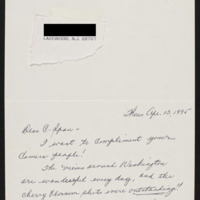 LAKEWOOD, N.J. 08701
Thurs Apr. 13, 1995
Dear C-Span -
I want to compliment your
camera people!
The views around Washington
are wonderful every day, and the
cherry blossom shots were outstanding!!